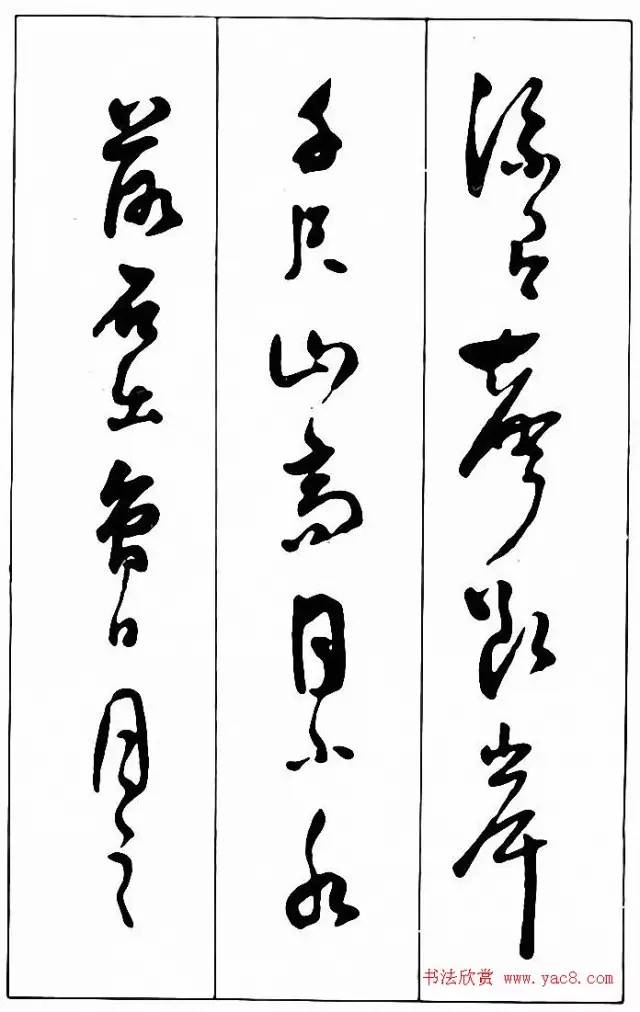 流有聲斷岸
千尺山高月小水
落石出曾日月之
书法欣赏 www.yac8.com